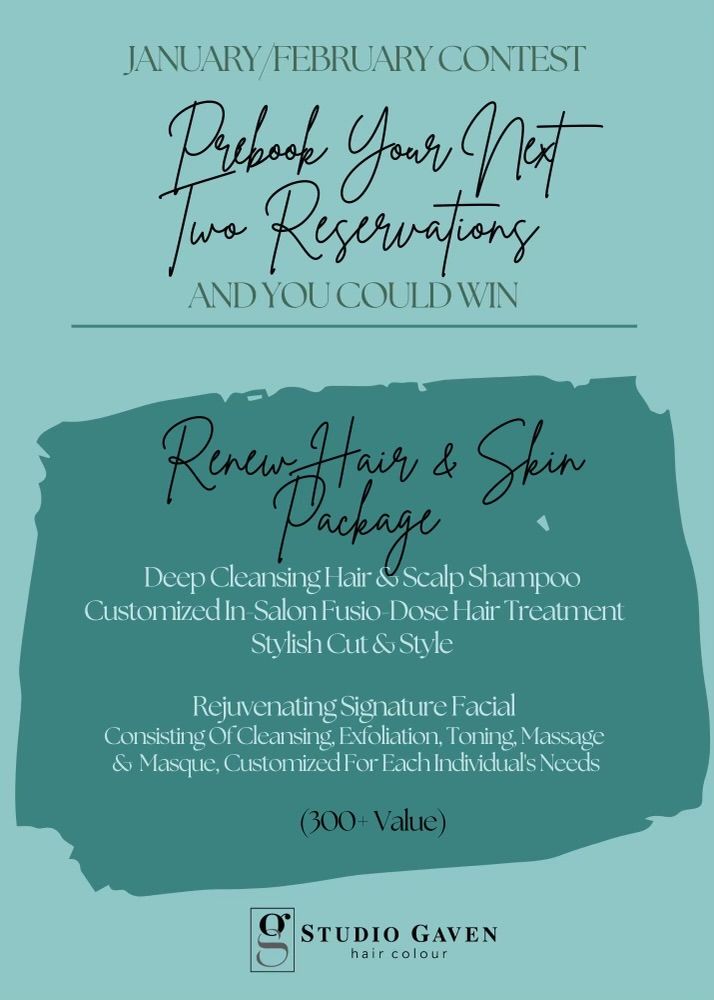 JANUARY/FEBRUARY CONTEST
Prebook Your Next
Two Reservations
AND YOU COULD WIN
Renew Hair & Skin
Package
Deep Cleansing Hair & Scalp Shampoo
Customized In-Salon Fusio-Dose Hair Treatment
Stylish Cut & Style
Rejuvenating Signature Facial
Consisting Of Cleansing, Exfoliation, Toning, Massage
& Masque, Customized For Each Individual's Needs
(300+ Value)
STUDIO GAVEN
hair colour